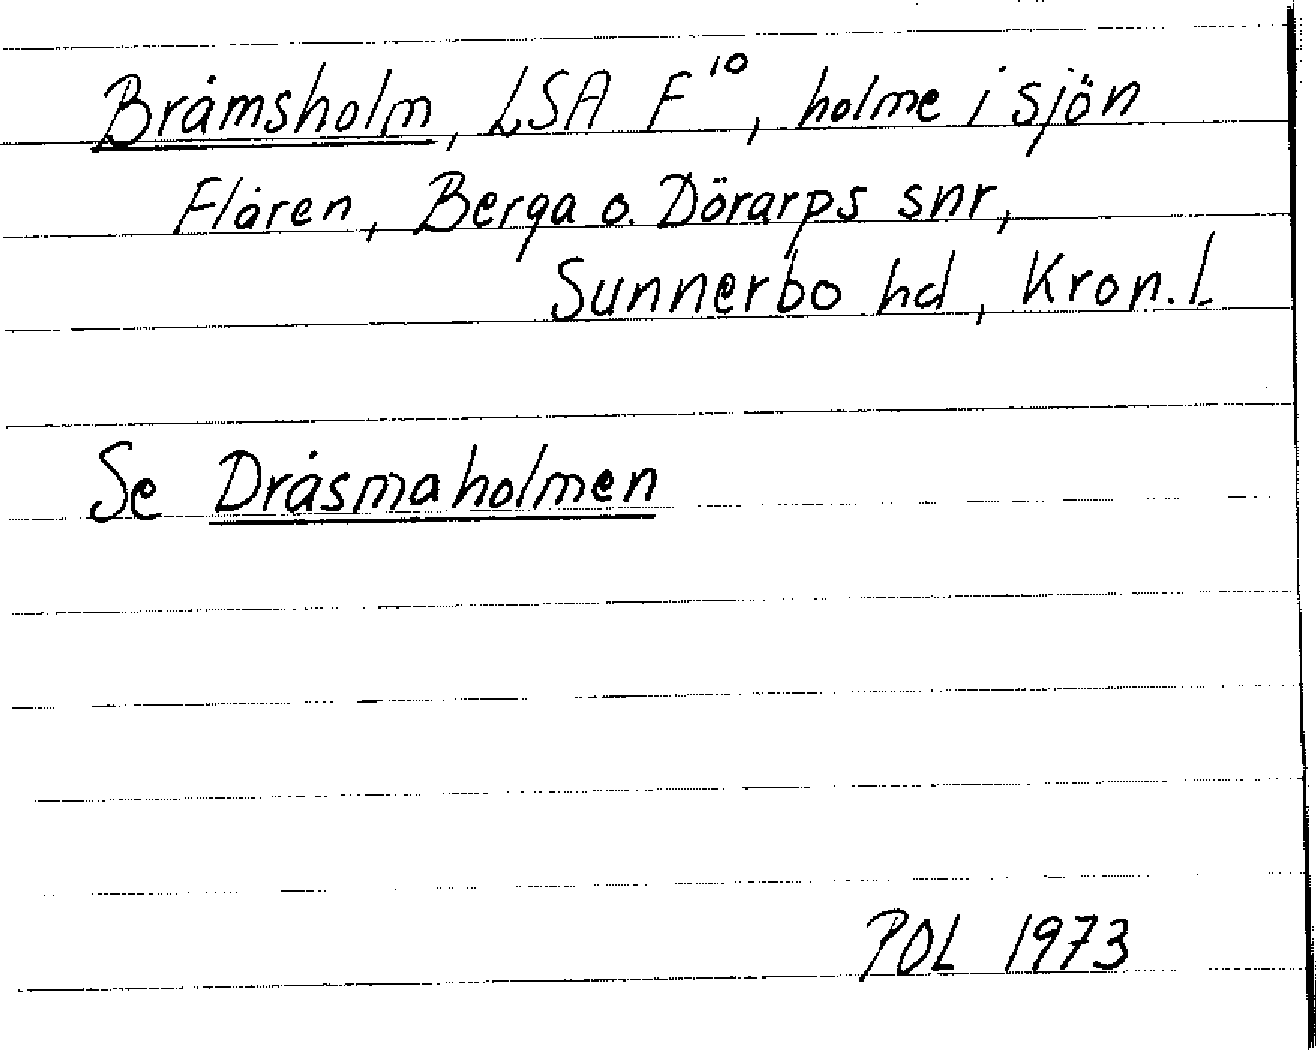 Bråmsholm, LSA F¹⁰, holme i sjön
Flåren, Berga o. Dörarps snr,
Sunnerbo hd, Kron. L
Se Dråsmaholmen
POL 1973